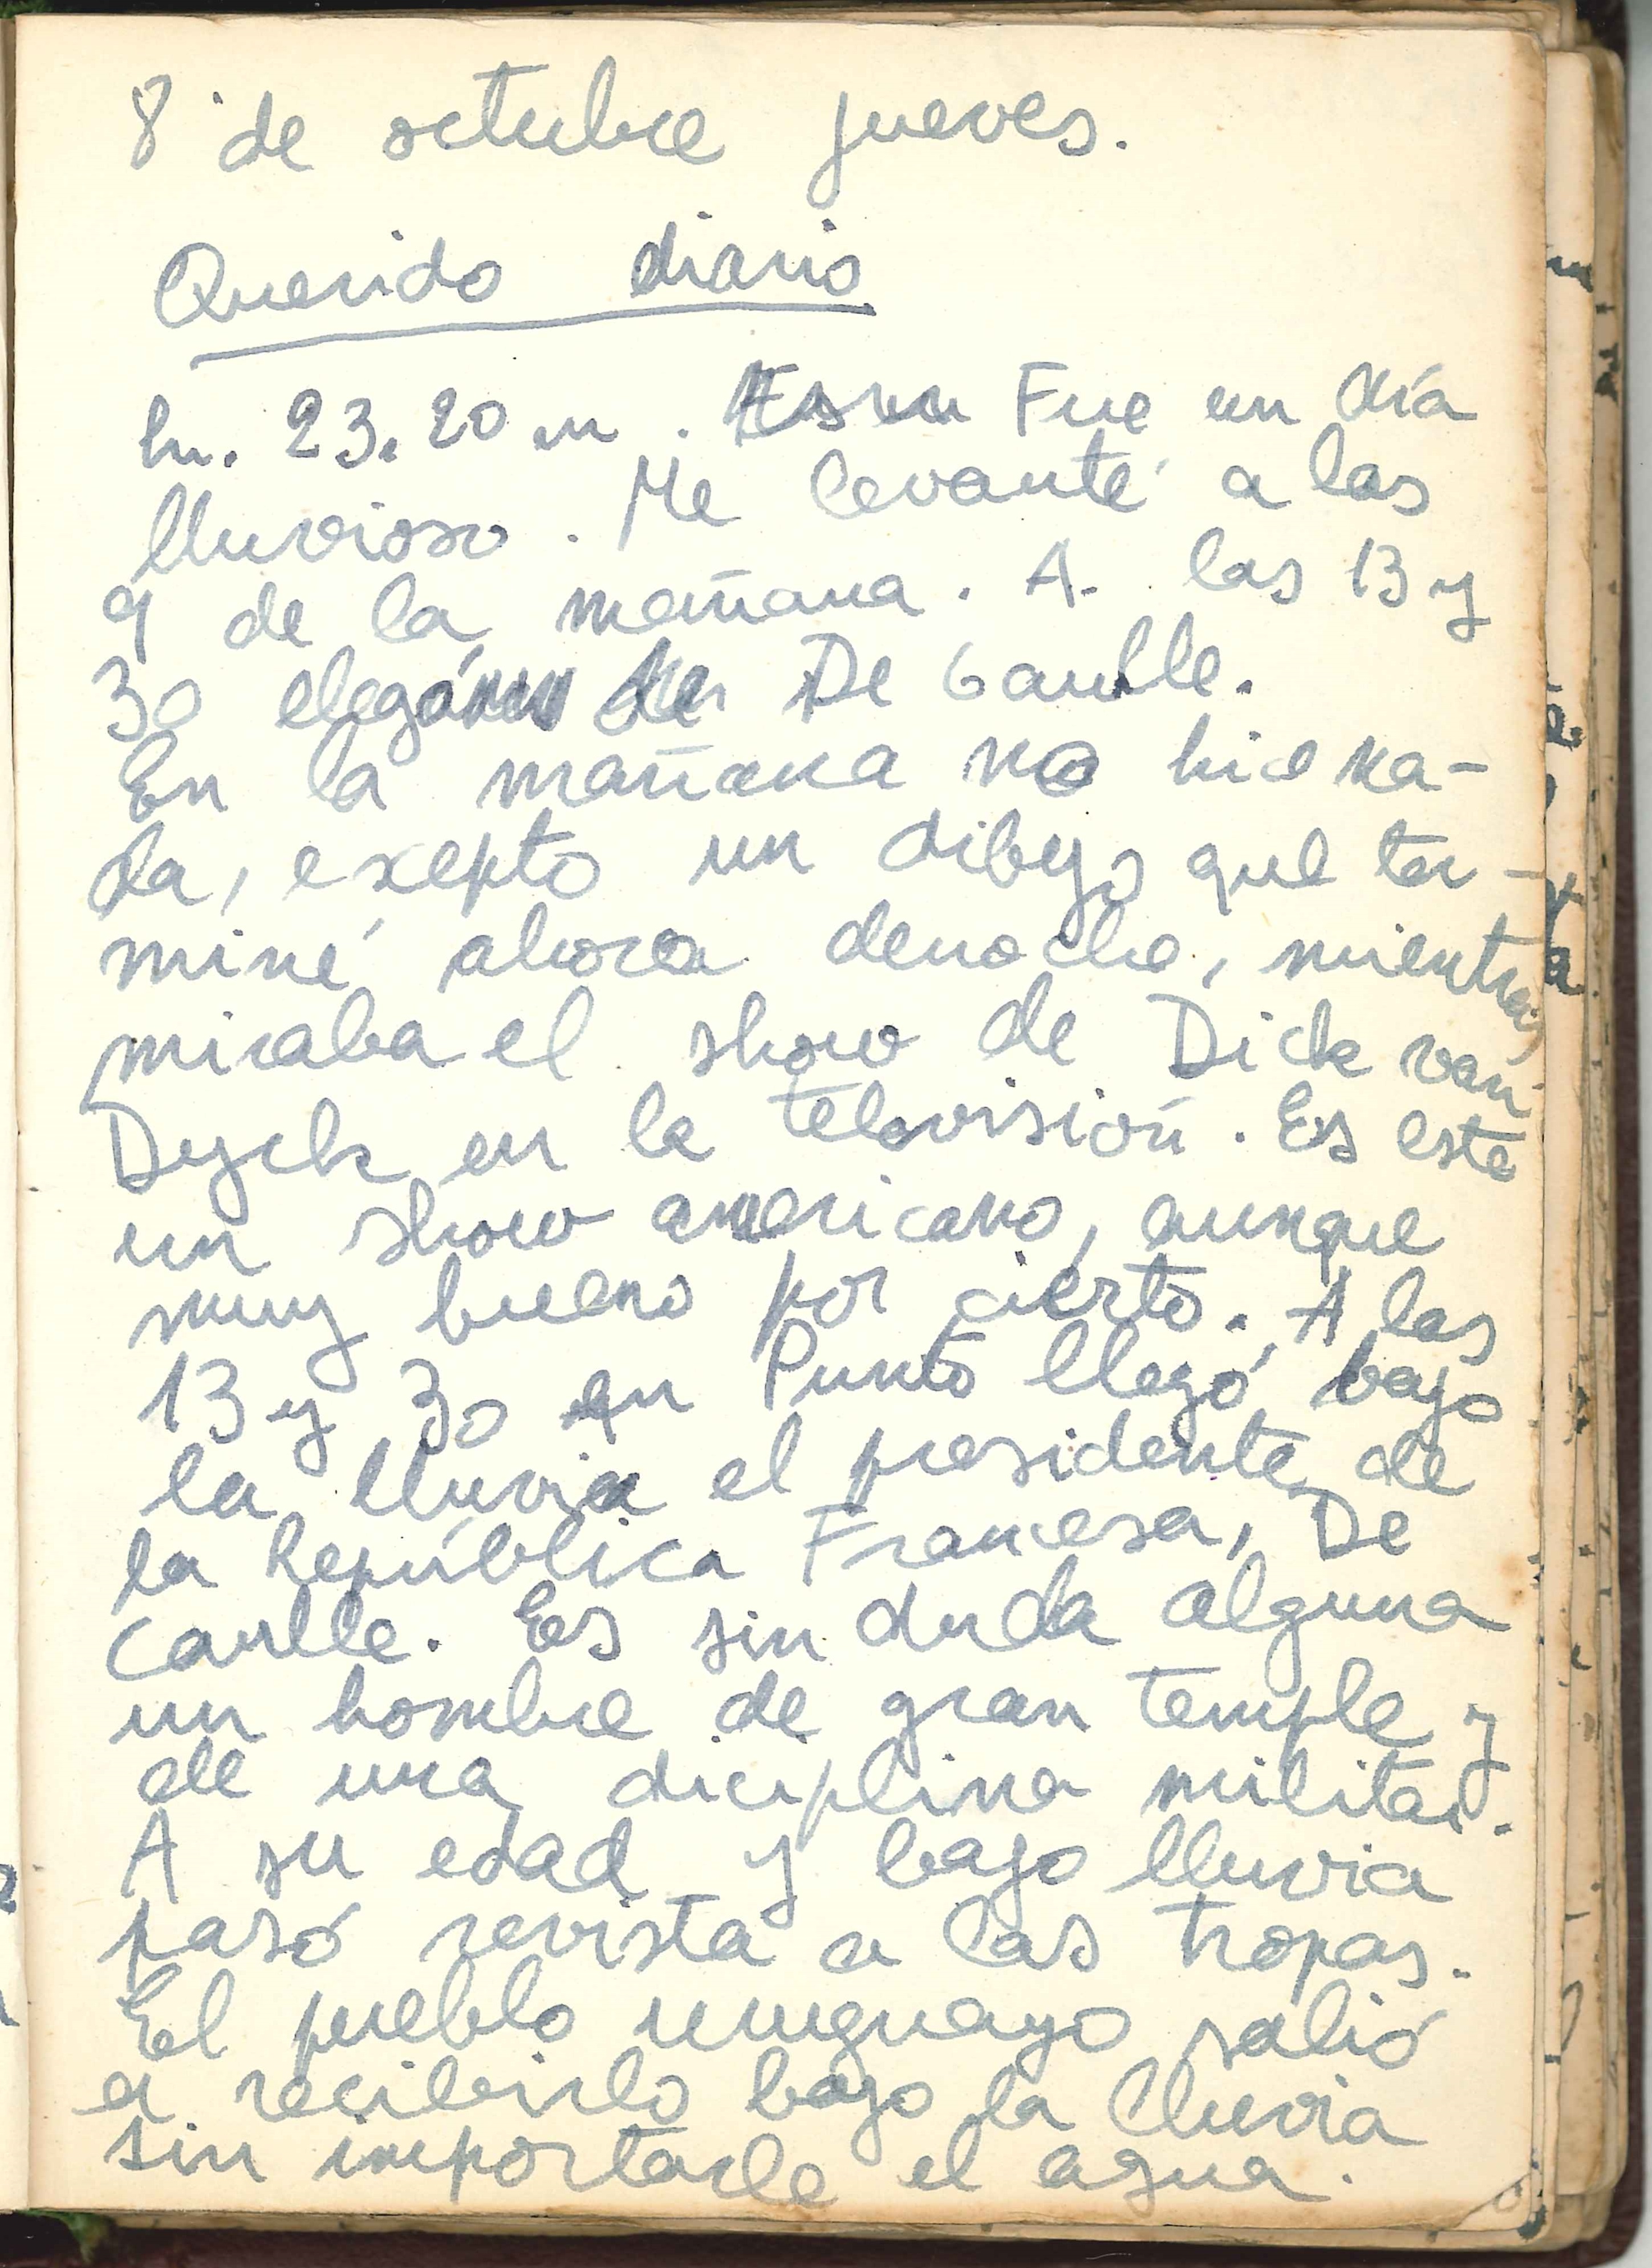 8 de octubre jueves.
Querido diario
hr. 23.20 m. Fue un día
lluvioso. Me levanté a las
9 de la mañana. A. las 13 y
30 De Gaulle.
En la mañana no hice na-
da, exepto un dibujo que ter-
miné ahora denoche, mientras
miraba el show de Dick van
Dyck en la televisión. Es este
un show americano, aunque
muy bueno por cierto. A las
13 y 30 en Punto llegó bajo
la lluvia el presidente de
la República Francesa, De
Gaulle. Es sin duda alguna
un hombre de gran temple y
de una diciplina militar.
A su edad y bajo lluvia
pasó revista a las tropas.
El pueblo uruguayo salió
a recibirlo bajo la lluvia
sin importarle el agua.